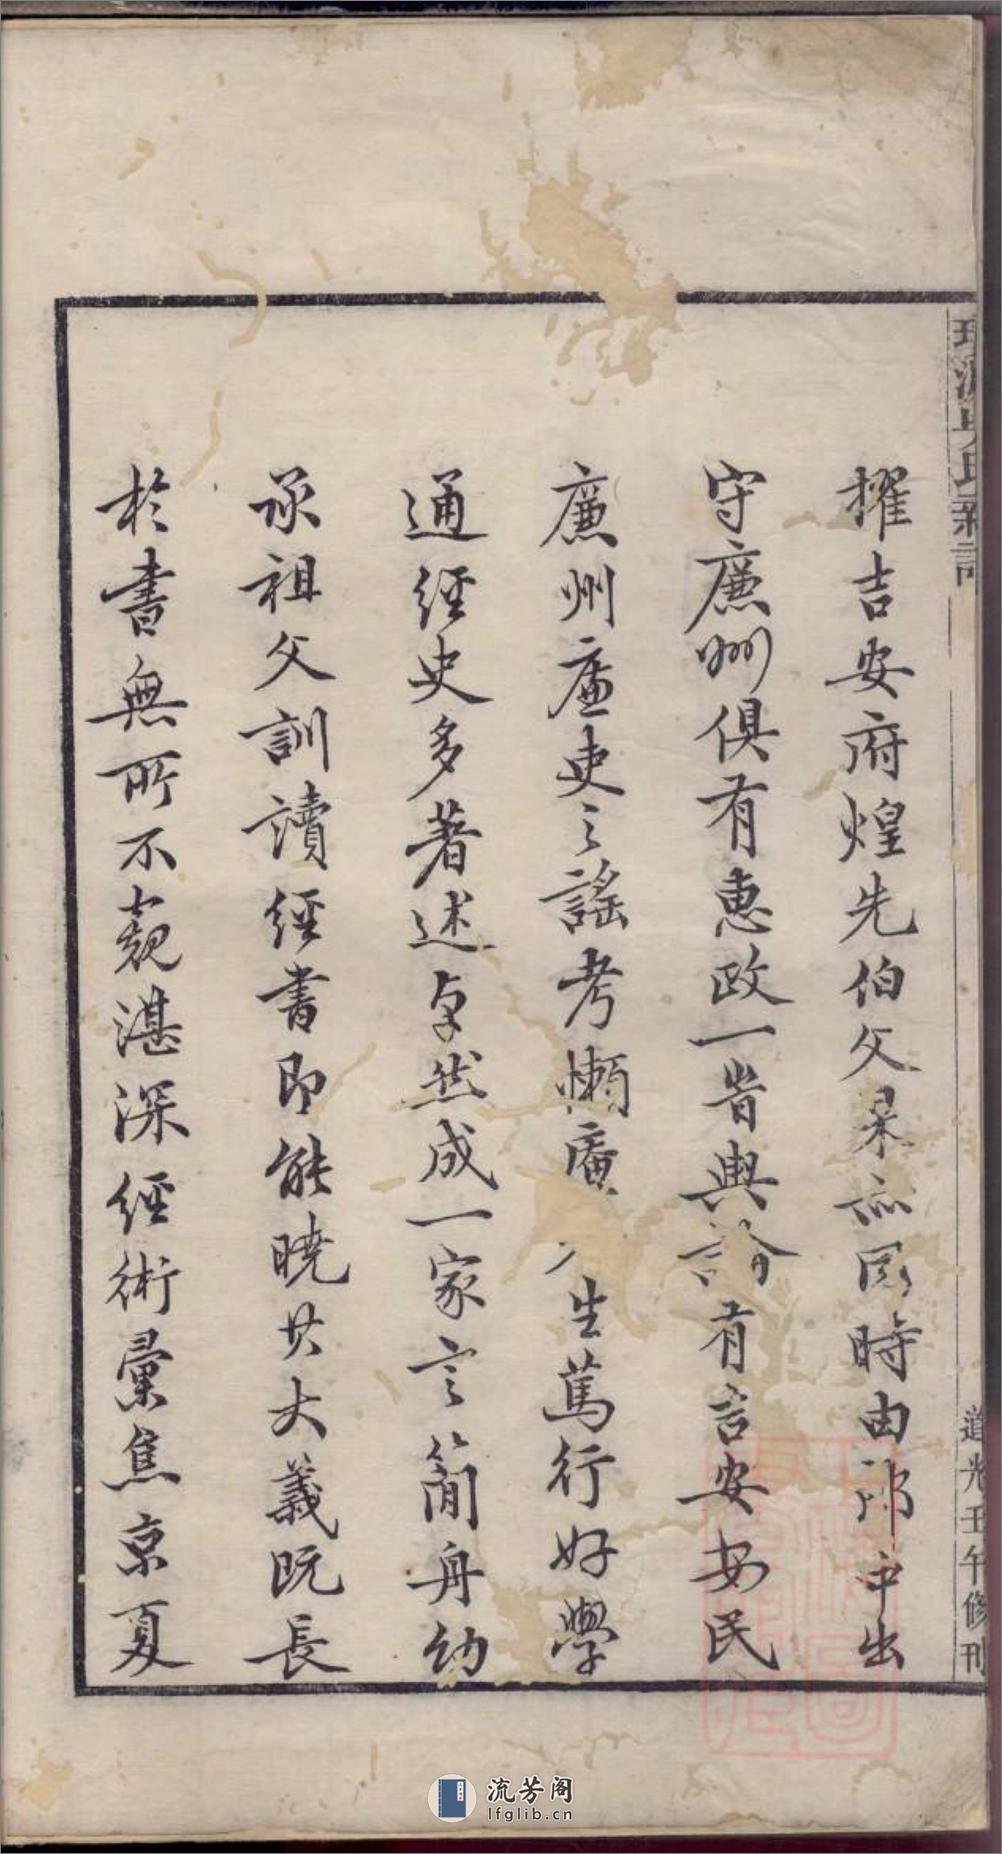 擢吉安府煌先伯父杲亦同時由部中出
守廉州俱有惠政一昔輿論有吉安安民
廉州廉吏之謠考懶庵 生篤行好學
通經史多著述卓然成一家言簡舟幼
承祖父訓讀經書即能曉其大義既長
於書無所不窺湛深經術彙焦京夏
道光壬午修刊
流芳阁
lfglib.cn